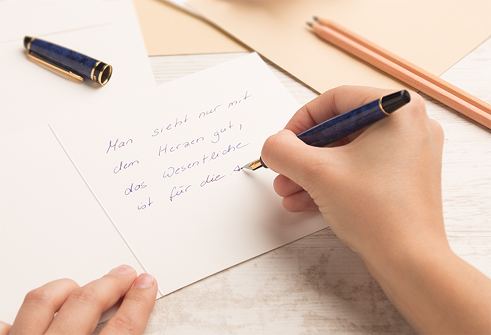 Man sieht nur mit
dem Herzen gut,
das Wesentliche
ist für die